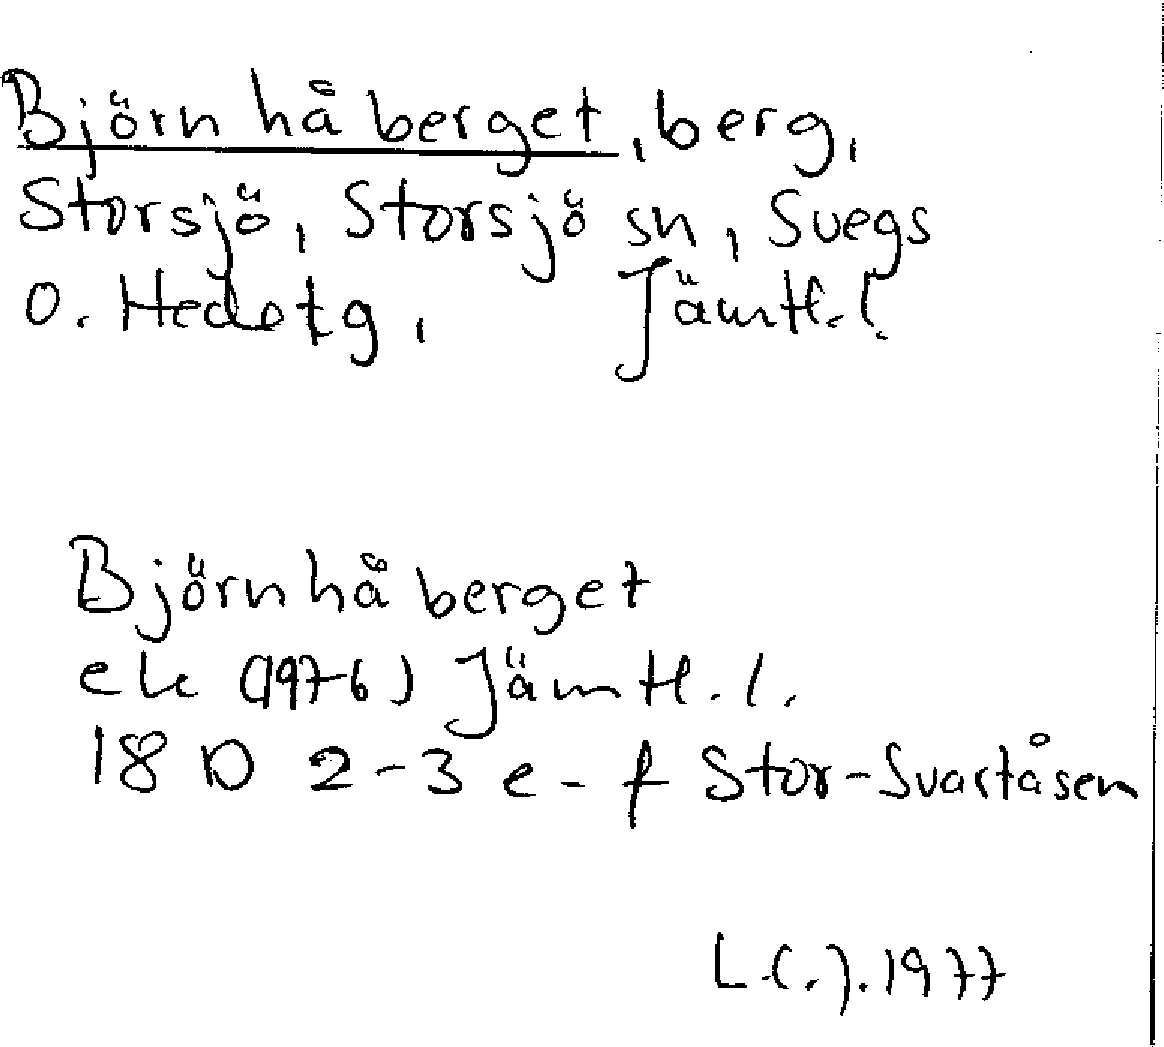 Björnhåberget, berg,
Storsjö, Storsjö sn, Svegs
o. Heds tg, Jämtl. l.
Björnhåberget
ek (1976) Jämtl. l.
18 D 2-3 e-f Stor-Svartåsen
L.C.J. 1977